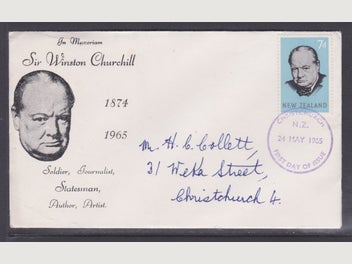 In Memoriam
Sir Winston Churchill
1874
1965
Soldier, Journalist,
Statesman,
Author, Artist.
7d
NEW ZEALAND
CHRISTCHURCH
N.Z.
24 MAY 1965
FIRST DAY OF ISSUE
Mr. H. C. Collett,
31 Weka Street,
Christchurch 4.